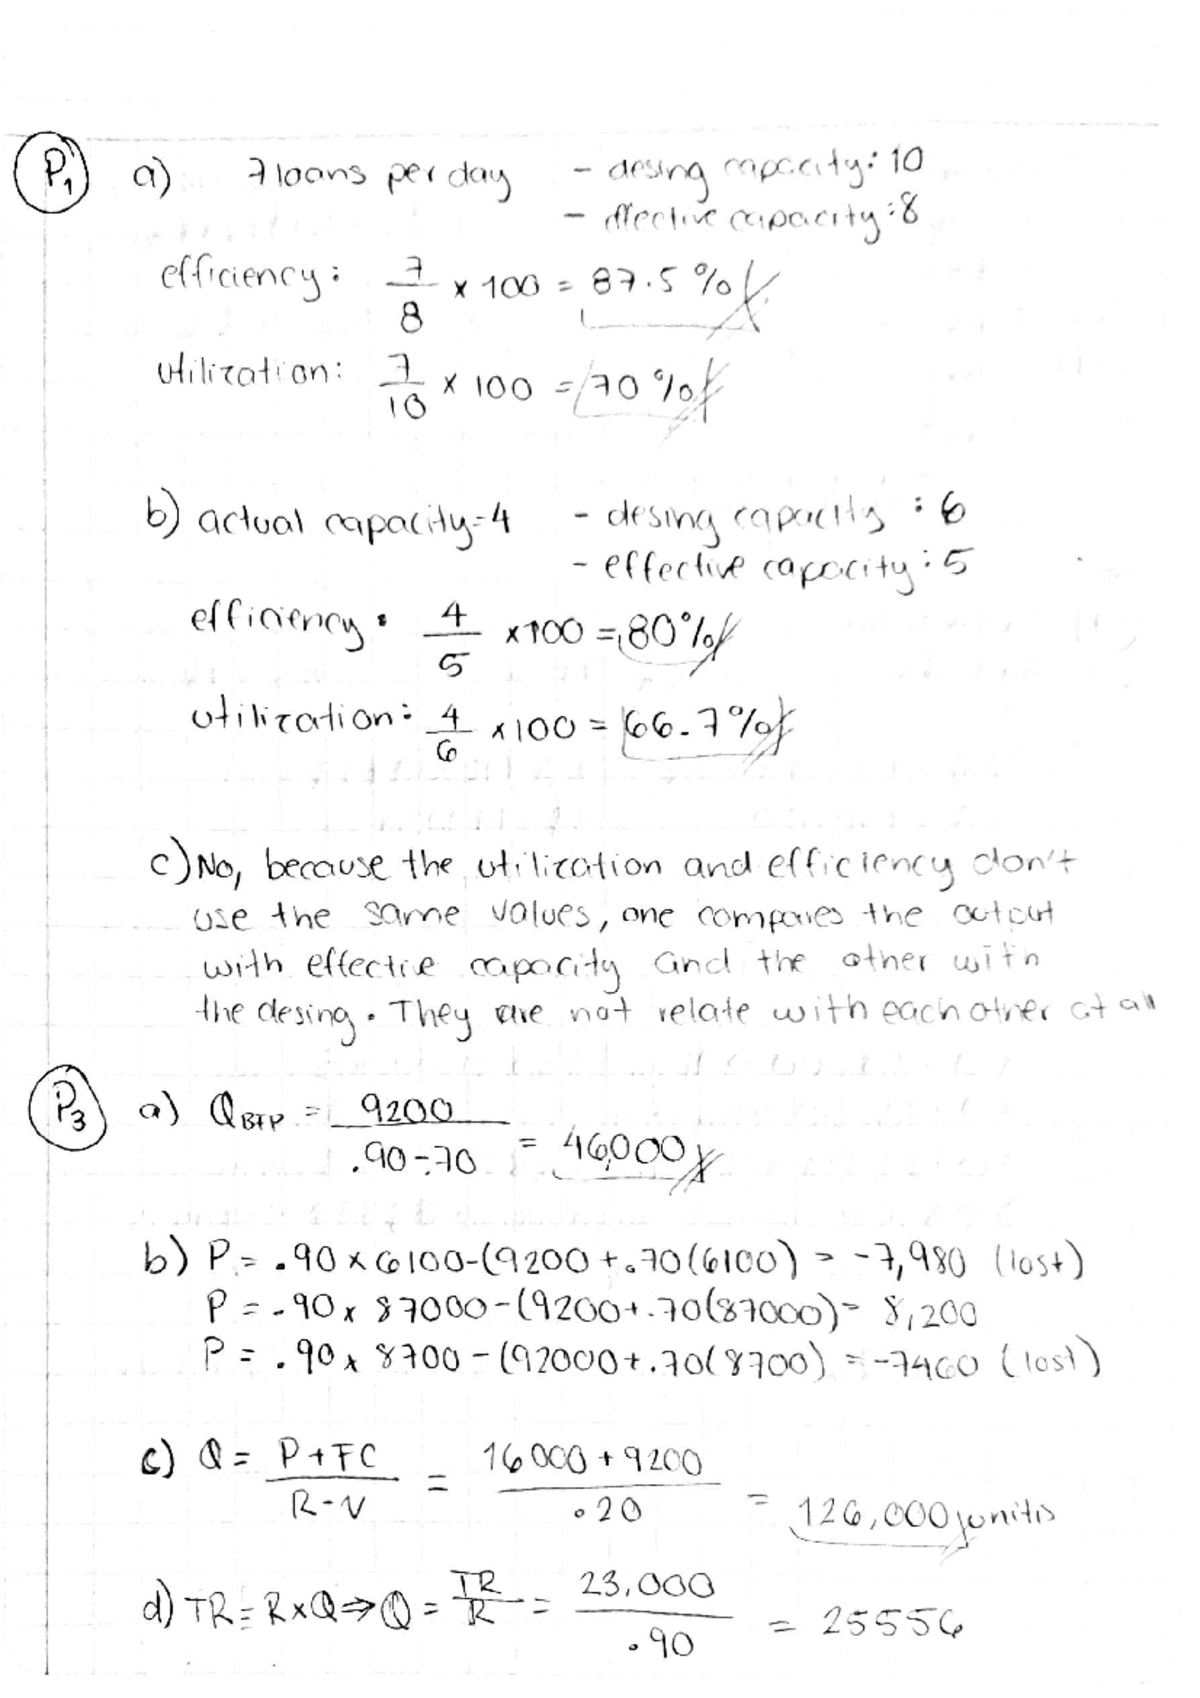 P1 a) 7 loans per day - desing capacity: 10
- effective capacity: 8
efficiency: 7/8 x 100 = 87.5 %
utilization: 7/10 x 100 = 70 %
b) actual capacity=4 - desing capacity : 6
- effective capacity: 5
efficiency: 4/5 x100 = 80%
utilization: 4/6 x100 = 66.7%
c) No, because the utilization and efficiency don't
use the same values, one compares the output
with effective capacity and the other with
the desing. They are not relate with each other at all
P3 a) QBEP = 9200/.90-.70 = 46,000
b) P = .90 x 6100-(9200+.70(6100) = -7,980 (lost)
P = .90 x 87000-(9200+.70(87000)= 8,200
P = .90 x 8700-(92000+.70(8700) = -7460 (lost)
c) Q = P+FC/R-V = 16000+9200/.20 = 126,000 units
d) TR= RxQ⇒Q = TR/R = 23,000/.90 = 25556